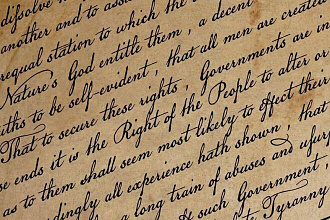 dissolve
another and to assu
equal station to which the
Nature's God entitle them, a decent
ths to be self-evident, that all men are created
That to secure these rights, Governments are in
e ends it is the Right of the People to alter or
as to them shall seem most likely to effect their
dingly all experience hath shown, that
a long train of abuses and usur
such Government
Tyranny